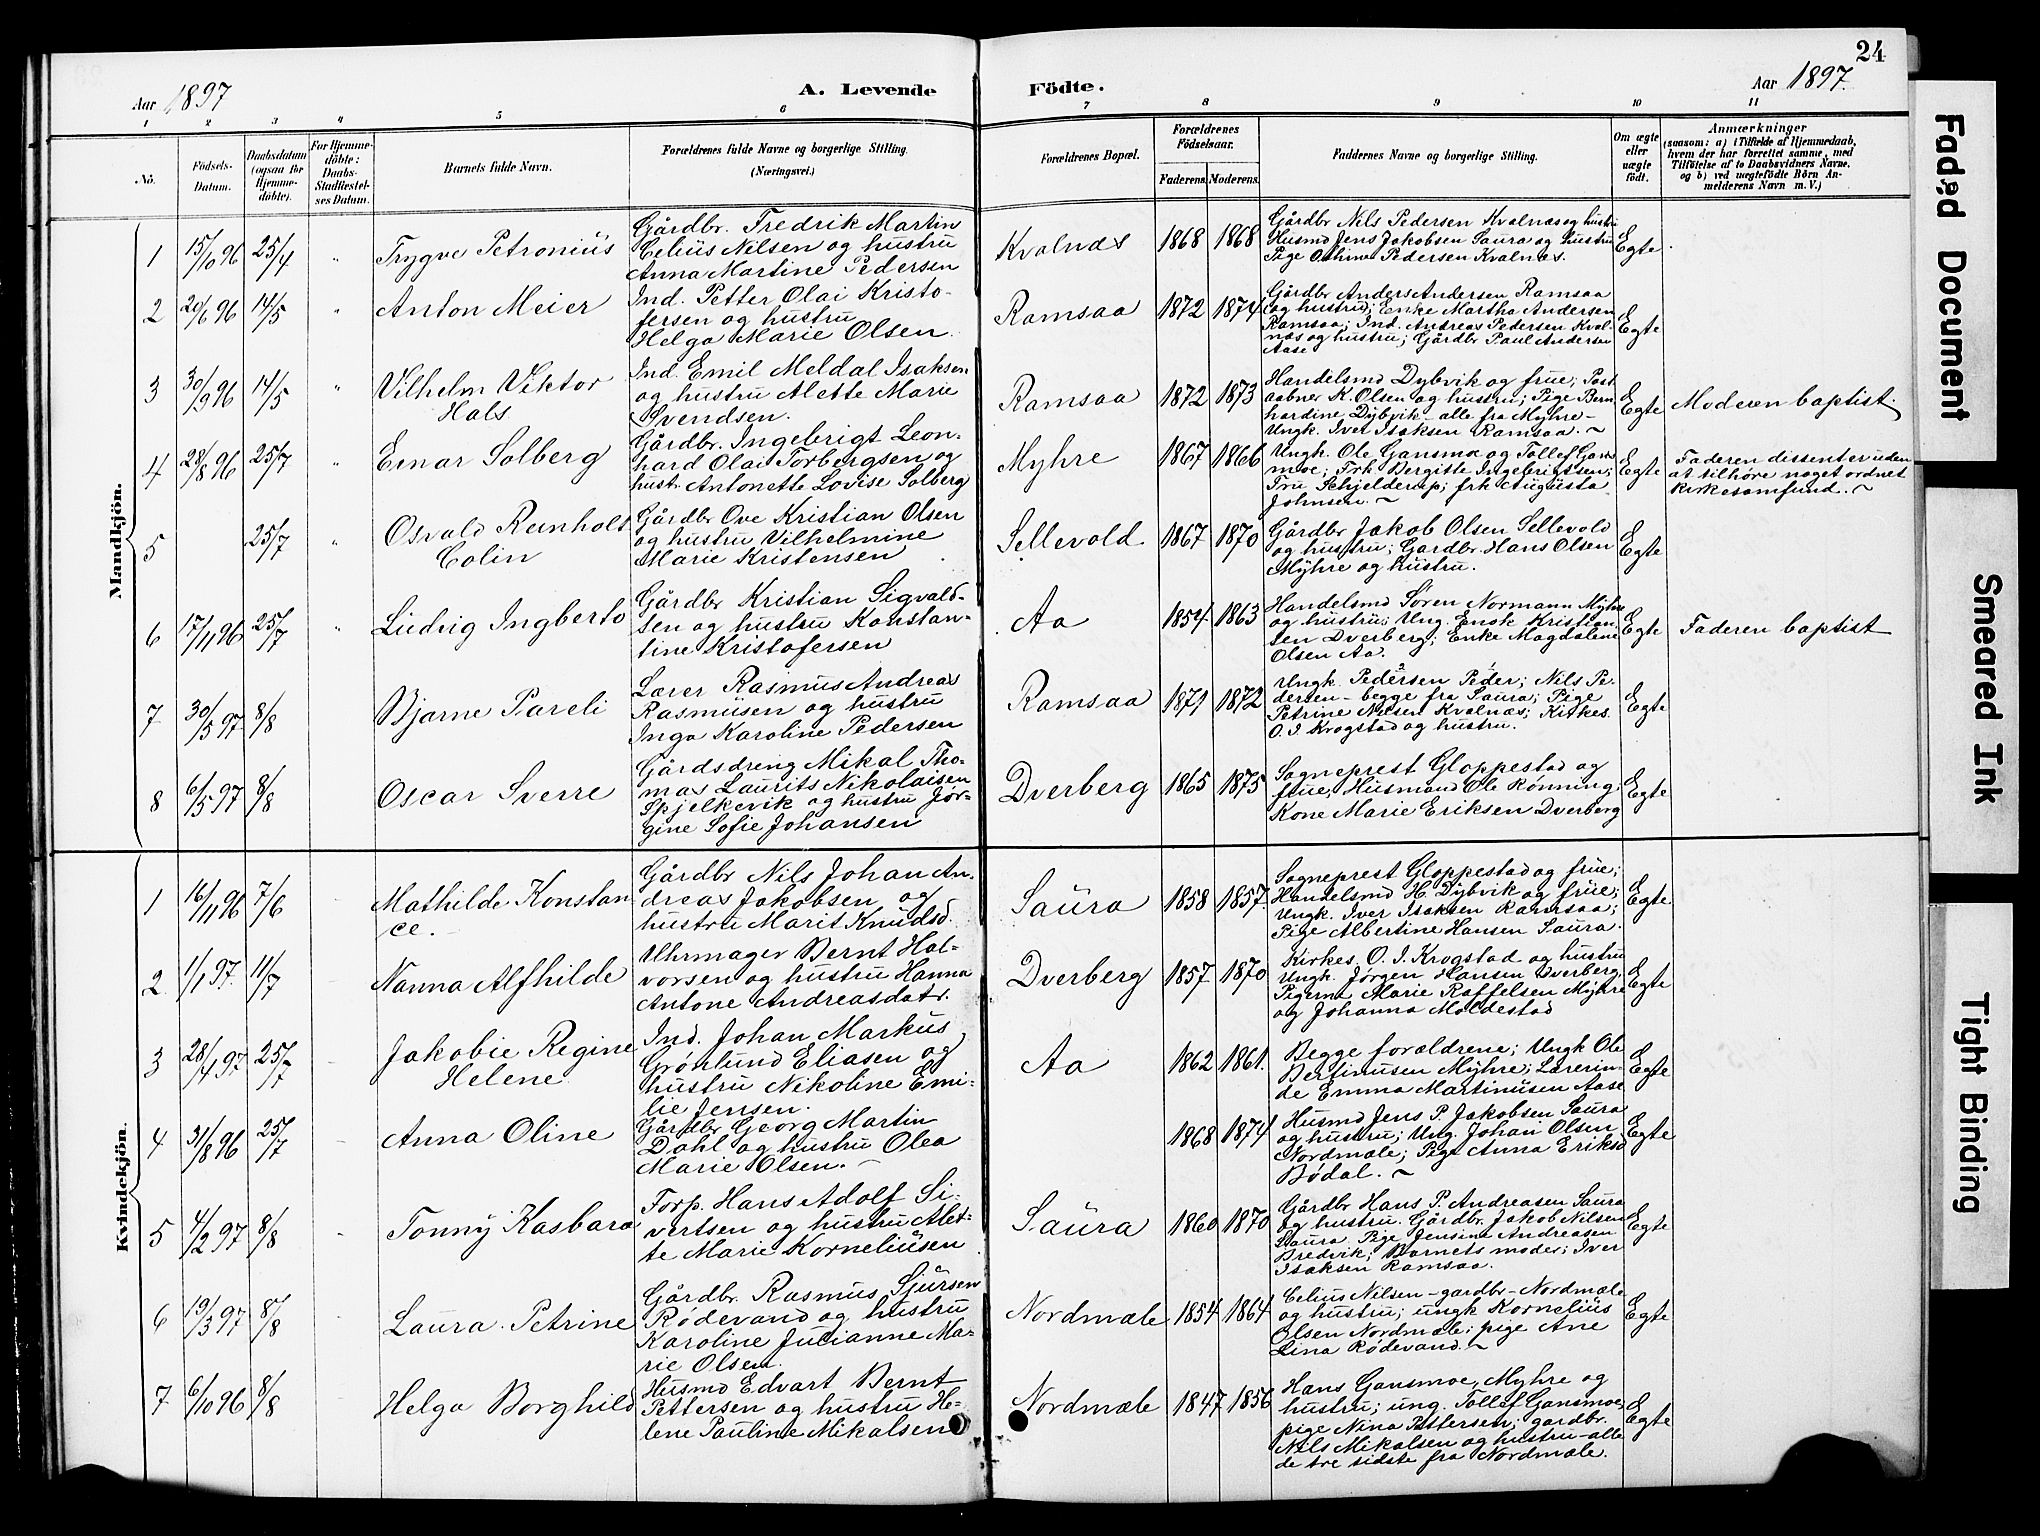 24
Aar 1897
A. Levende Födte.
Aar 1897.
1 2 3 4 5 6 7 8 9 10 11
No.
Födsels-
Datum.
Daabsdatum
(ogsaa for
Hjemme-
döbte).
For Hjemme-
döbte:
Daabs-
Stadfæstel-
ses Datum.
Barnets fulde Navn.
Forældrenes fulde Navne og borgerlige Stilling.
(Næringsvei.)
Forældrenes Bopæl.
Forældrenes
Födselsaar.
Faderens. Moderens.
Faddernes Navne og borgerlige Stilling.
Om ægte
eller
uægte
födt.
Anmærkninger
(saasom: a) i Tilfælde af Hjemmedaab,
hvem der har forrettet samme, med
Tilföielse af to Daabsvidners Navne,
og b) ved uægtefödte Börn An-
melderens Navn m. V.)
Mandkjön.
1 15/10 96 25/4 " Trygve Petronius
Gårdbr. Fredrik Martin
Celius Nilsen og hustru
Anna Martine Pedersen
Kvalnæs 1868 1868
Gårdbr Nils Pedersen Kvalnæs og hustru
Husmd Jens Jakobsen Saura og hustru
Pige Othine Pedersen Kvalnæs.
Egte
2 20/6 96 14/5 " Anton Meier
Ind. Petter Olai Kristo-
fersen og hustru
Helga Marie Olsen.
Ramsaa 1872 1874
Gårdbr Anders Andersen Ramsaa
og hustru; Enke Martha Andersen
Ramsaa; Ind. Andreas Pedersen Kval-
næs og hustru; Gårdbr Paul Andersen
Aase
Egte
3 30/9 96 14/5 " Vilhelm Viktor
Hals
Ind. Emil Meldal Isaksen
og hustru Alette Marie
Svendsen.
Ramsaa 1872 1873
Handelsmd Dybvik og frue; Post-
aabner K. Olsen og hustru; Pige Bern
hardine Dybvik - alle fra Myhre -
Ungk. Iver Isaksen Ramsaa. ~
Egte Moderen baptist.
4 28/8 96 25/7 " Einar Solberg
Gårdbr. Ingebrigt Leon-
hard Olai Torbergsen og
hustr. Antonette Lovise Solberg
Myhre 1867 1866
Ungk. Ole Gansmo og Tollef Gans-
moe; Frk Bergitte Ingebrigtsen;
Fru Schjelderup; frk Augusta
Johnsen. ~
Egte Faderen dissenter uden
at tilhöre noget ordnet
kirkesamfund. ~
5 25/7 " Osvald Reinholt
Colin
Gårdbr Ove Kristian Olsen
og hustru Vilhelmine
Marie Kristensen
Sellevold 1867 1870
Gårdbr Jakob Olsen Sellevold
og hustru; Gardbr. Hans Olsen
Myhre og hustru.
Egte
6 17/11 96 25/7 " Ludvig Ingberto
Gårdbr Kristian Sigvald-
sen og hustru Konstan-
tine Kristofersen
Aa 1854 1863
Handelsmd Sören Normann Myhre
og hustru; Ung. Enok Kristian-
sen Dverberg; Enke Magdalene
Olsen Aa.
Egte Faderen baptist
7 30/5 97 8/8 Bjarne Pareli
Lærer Rasmus Andreas
Rasmusen og hustru
Inga Karoline Pedersen
Ramsaa 1871 1872
Ungk. Pedersen Peder; Nils Pe-
dersen - begge fra Saura; Pige
Petrine Nilsen Kvalnæs; Kirkes.
O. J. Krogstad og hustru.
Egte
8 6/5 97 8/8 Oscar Sverre
Gårdsdreng Mikal Tho-
mas Laurits Nikolaisen
Spjelkevik og hustru Jör-
gine Sofie Johansen
Dverberg 1865 1875
Sogneprest Gloppestad og
frue; Husmand Ole Rönning;
Kone Marie Eriksen Dverberg
Egte
Kvindekjön.
1 16/11 96 7/6 Mathilde Konstan
ce.
Gårdbr Nils Johan An-
dreas Jakobsen og
hustru Marit Knudsd.
Saura 1858 1857.
Sogneprest Gloppestad og frue;
Handelsmd H. Dybvik og frue;
Ungk. Iver Isaksen Ramsaa;
Pige Albertine Hansen Saura.
Egte
2 1/1 97. 11/7 Nanna Alfhilde
Uhrmager Bernt Hal-
vorsen og hustru Hanna
Antone Andreasdatr.
Dverberg 1857 1870
Kirkes. O. J. Krogstad og hustru
Ungk. Jørgen Hansen Dverberg
Pigerne Marie Raffelsen Myhre
og Johanna Moldestad
Egte
3 28/1 97 25/7 Jakobie Regine
Helene
Ind. Johan Markus
Grönlund Eliasen og
hustru Nikoline Emi-
lie Jensen.
Aa 1862 1861.
Begge forældrene; Ungk Ole
Bertinusen Myhre; Lærerin-
de Emma Martinusen Aase
Egte
4 31/8 96 25/7 Anna Oline
Gårdbr Georg Martin
Dahl og hustru Olea
Marie Olsen. ~
1868 1874
Husmd Jens P. Jakobsen Saura
og hustru; Ung. Johan Olsen
Nordmæle; Pige Anna Eriksd
Bødal. ~
Egte
5 4/2 97 8/8 Tonny Kasbara
Forp. Hans Adolf Si-
vertsen og hustru Alet-
te Marie Korneliusen
Saura 1860 1870
Gårdbr Hans P. Andreasen Saura
og hustru. Gårdbr. Jakob Nilsen
Saura Pige Jensine Andreasen
Bredvik; Barnets moder; Iver
Isaksen Ramsaa.
Egte
6 19/3 97 8/8 Laura Petrine
Gårdbr. Rasmus Sjursen
Rødevand og hustru
Karoline Julianne Ma-
rie Olsen.
Nordmæle 1854 1864
Celius Nilsen - gardbr - Nordmæle
og hustru; ungk Kornelius
Olsen Nordmæle; pige Ane
Lina Rødevand. ~
Egte
7 6/10 96 8/8 Helga Borghild
Husmd Edvart Bernt
Pettersen og hustru He-
lene Pauline Mikalsen
Nordmæle 1847 1856
Hans Gansmoe, Myhre og
hustru; ung. Tollef Gansmoe,
pige Nina Pettersen; gardbr.
Nils Mikalsen og hustru - alle
de tre sidste fra Nordmæle.
Egte
Faded Document
Smeared Ink
Tight Binding